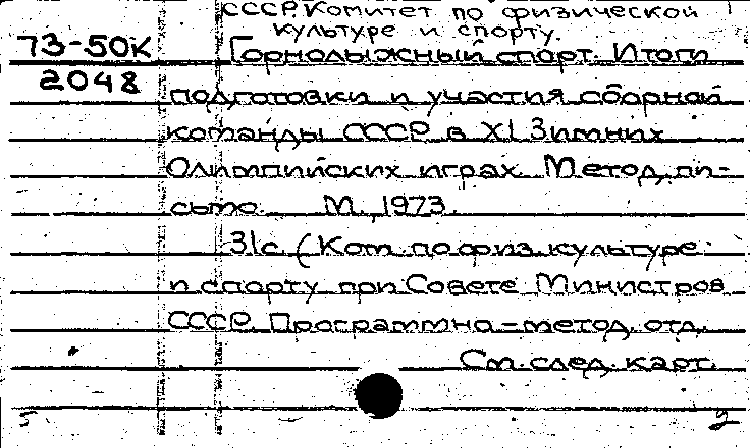 СССР. Комитет по физической
культуре и спорту.
73-50К Горнолыжный спорт. Итоги
2048
подготовки и участия сборной
команды СССР в XI Зимних
Олимпийских играх. Метод. пи-
сьмо. М., 1973.
31с. (Ком. по физ. культуре
и спорту при Совете Министров
СССР. Программно-метод. отд.
См. след. карт.
5 2